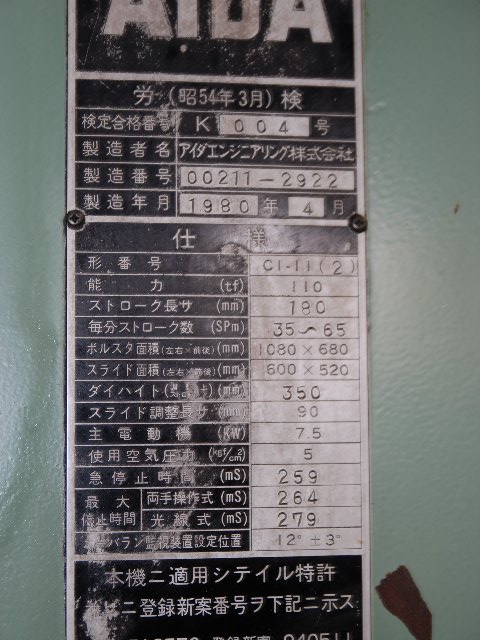 AIDA
労(昭54年3月)検
検定合格番号 K 004 号
製造者名 アイダエンジニアリング株式会社
製造番号 00211-2922
製造年月 1980年 4月
仕様
形番号 C1-11(2)
能力 (tf) 110
ストローク長サ (mm) 180
毎分ストローク数 (SPm) 35〜65
ボルスタ面積(左右×前後)(mm) 1080×680
スライド面積(左右×前後)(mm) 600×520
ダイハイト (mm) 350
スライド調整長サ (mm) 90
主電動機 (KW) 7.5
使用空気圧力 (kgf/cm²) 5
急停止時間 (mS) 259
最大停止時間 両手操作式 (mS) 264
光線式 (mS) 279
バラン監視装置設定位置 12°±3°
本機ニ適用シテイル特許
ニ登録新案番号ヲ下記ニ示ス
登録新案